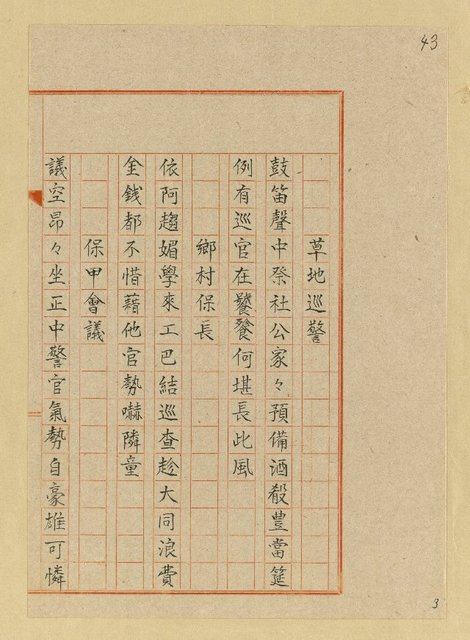 43
草地巡警
鼓笛聲中祭社公家々預備酒殽豊當筵
例有巡官在饕餮何堪長此風
鄉村保長
依阿趨媚學來工巴結巡查趁大同浪費
金錢都不惜藉他官勢嚇隣童
保甲會議
議空昂々坐正中警官氣勢自豪雄可憐
3